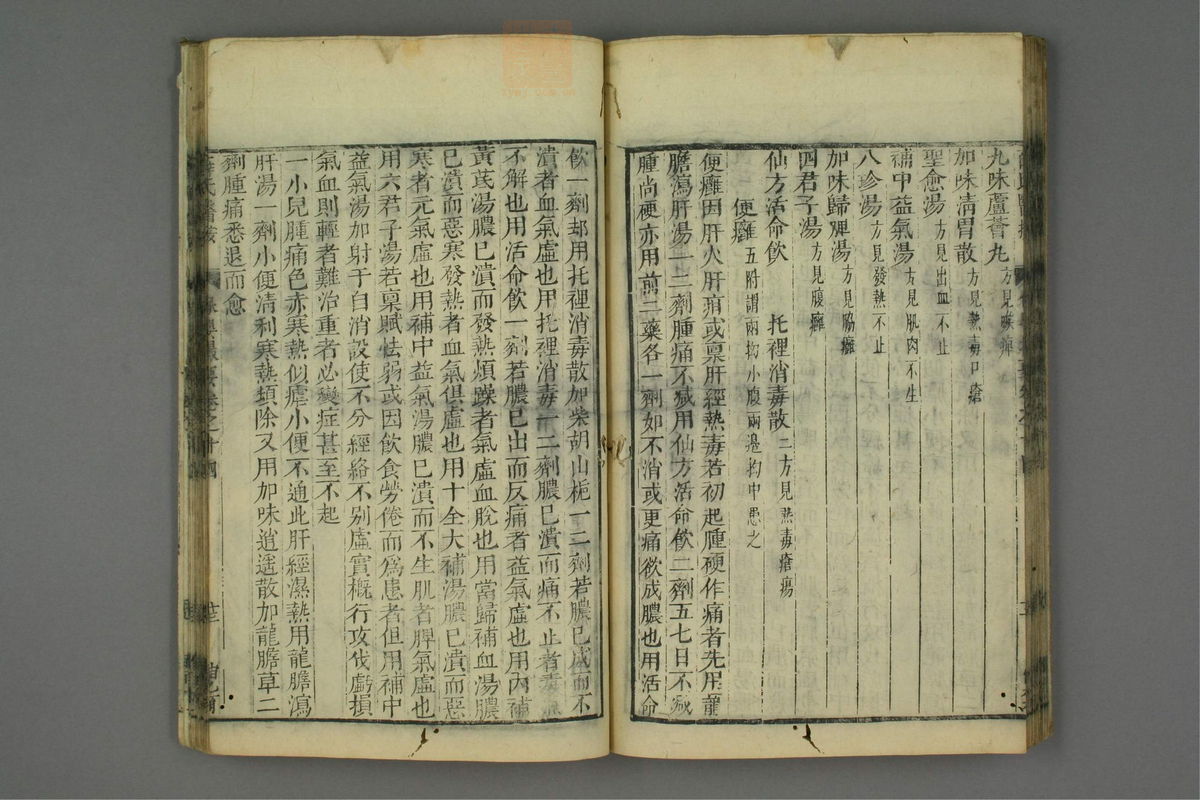 九味蘆薈丸方見喉痺
加味清胃散方見熱毒口瘡
聖愈湯方見出血不止
補中益氣湯方見肌肉不生
八珍湯方見發熱不止
加味歸脾湯方見脇癰
四君子湯方見腹癰
仙方活命飲 托裡消毒散二方見熱毒瘡瘍
便癰五附謂兩拗小腹兩邉拗中患之
便癰因肝火肝疳或稟肝經熱毒若初起腫硬作痛者先用龍
膽瀉肝湯一二劑腫痛不減用仙方活命飲二劑五七日不減
腫尚硬亦用前二藥各一劑如不消或更痛欲成膿也用活命
飲一劑却用托裡消毒散加柴胡山梔一二劑若膿已成而不
潰者血氣虛也用托裡消毒一二劑膿已潰而痛不止者毒
不解也用活命飲一劑若膿已出而反痛者益氣虛也用內補
黃芪湯膿已潰而發熱煩躁者氣虛血脫也用當歸補血湯膿
已潰而惡寒發熱者血氣俱虛也用十全大補湯膿已潰而惡
寒者元氣虛也用補中益氣湯膿已潰而不生肌者脾氣虛也
用六君子湯若稟賦怯弱或因飲食勞倦而爲患者但用補中
益氣湯加射干自消設使不分經絡不別虛實槪行攻伐虧損
氣血則輕者難治重者必變症甚至不起
一小兒腫痛色赤寒熱似瘧小便不通此肝經濕熱用龍膽瀉
肝湯一劑小便清利寒熱頓除又用加味逍遥散加龍膽草二
劑腫痛悉退而愈
薛氏醫案 卷之十四